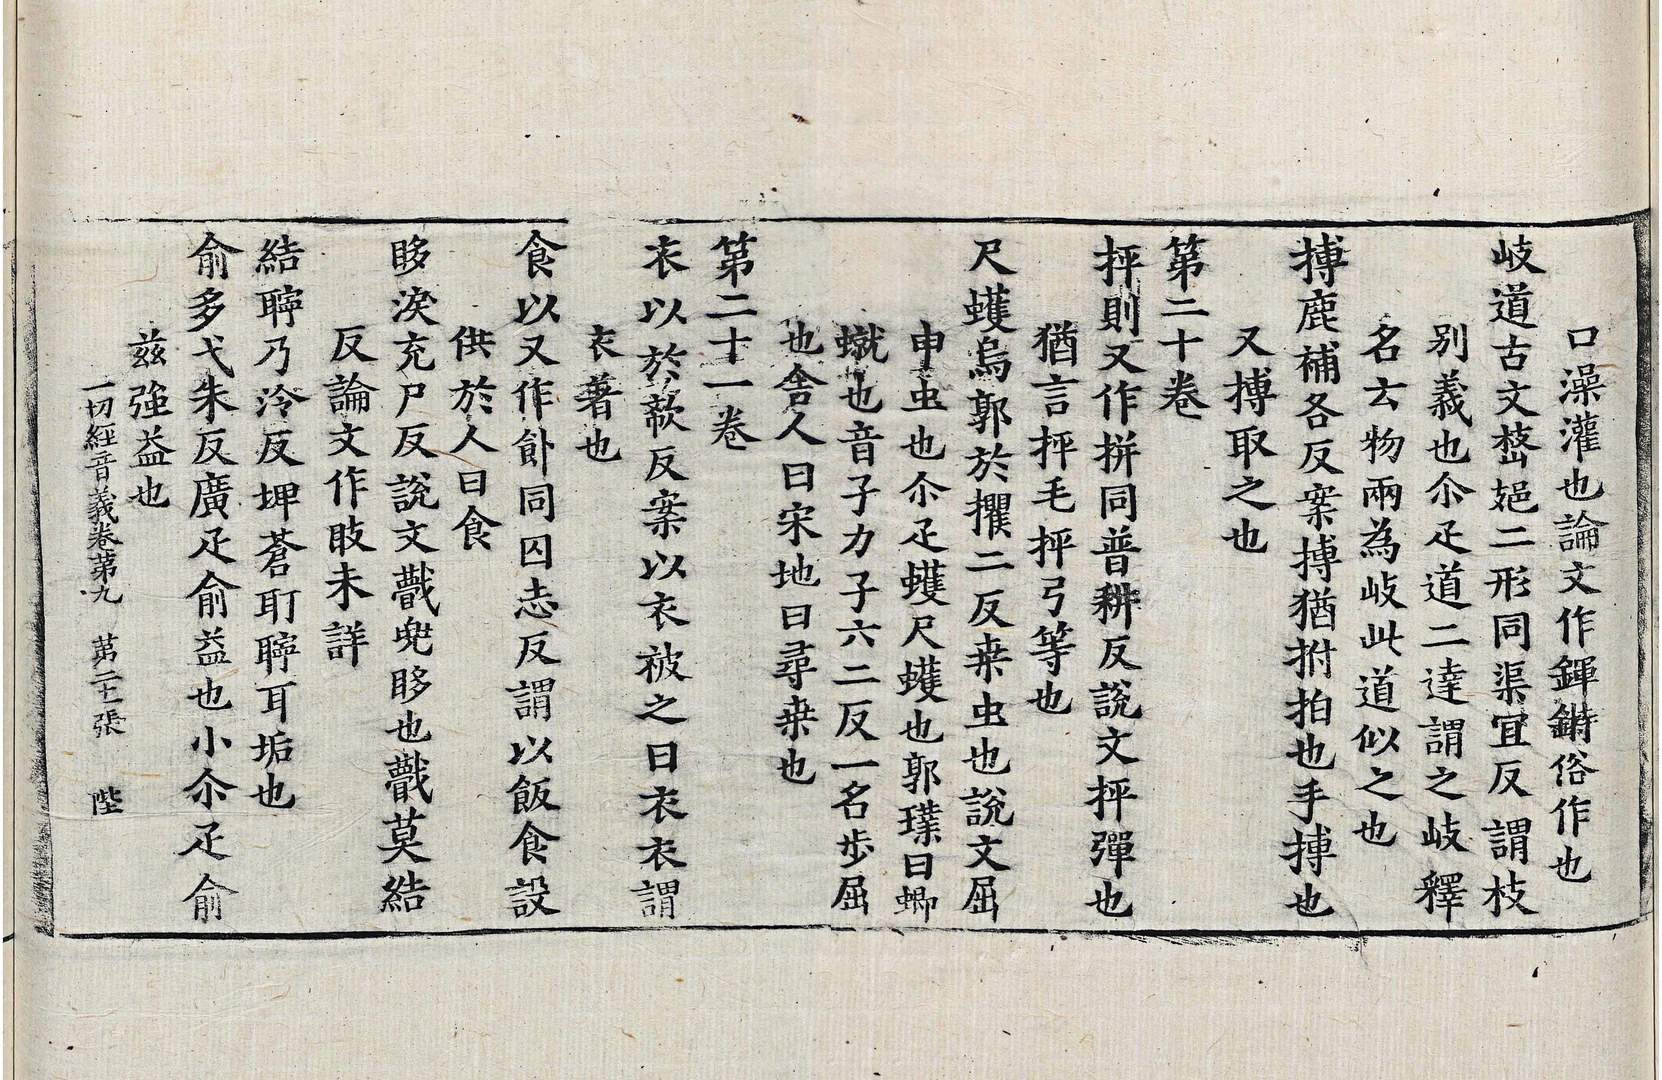 口澡灌也論文作鍕鏘俗作也
岐道古文㟚𨙸二形同渠宜反謂枝
別義也尒疋道二達謂之岐釋
名云物兩為岐此道似之也
搏鹿補各反案搏猶拊拍也手搏也
又搏取之也
第二十卷
抨則又作拼同普耕反說文抨彈也
猶言抨毛抨弓等也
尺蠖烏郭於攫二反桒虫也說文屈
申虫也尒疋蠖尺蠖也郭璞曰蝍
䗗也音子力子六二反一名步屈
也舍人曰宋地曰尋桒也
第二十一卷
衣以於𣣋反案以衣被之曰衣衣謂
衣著也
食以又作飤同囚志反謂以飯食設
供於人曰食
眵淚充尸反說文䁾兜眵也䁾莫結
反論文作䀢未詳
結聹乃泠反埤蒼耵聹耳垢也
俞多弋朱反廣疋俞益也小尒疋俞
茲強益也
一切經音義卷第九 苐二十二張 陛